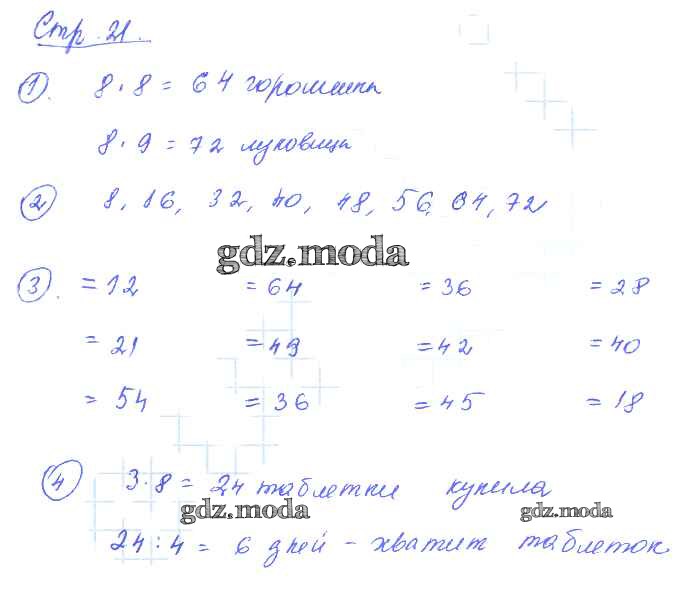 Стр. 21.
1. 8 · 8 = 64 горошины
8 · 9 = 72 луковицы
2 8, 16, 32, 40, 48, 56, 64, 72
gdz.moda
3. = 12 = 64 = 36 = 28
= 21 = 49 = 42 = 40
= 54 = 36 = 45 = 18
4 3 · 8 = 24 таблетки купила
gdz.moda gdz.moda
24 : 4 = 6 дней - хватит таблеток